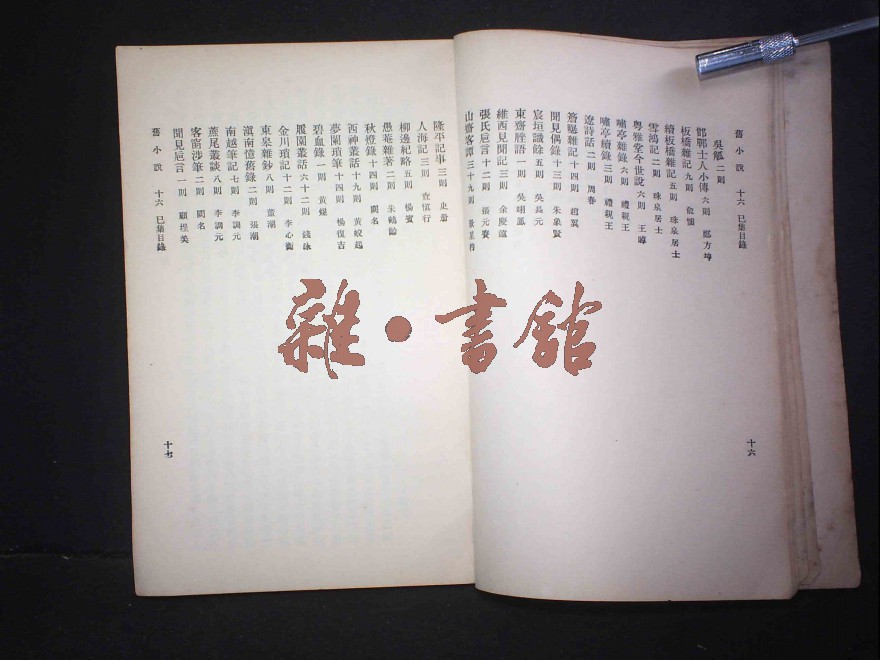 舊小說 十六 已集目錄
吳觚二則
邯鄲士人小傳六則 鄭方坤
板橋雜記九則 余懷
續板橋雜記五則 珠泉居士
雪鴻記二則 珠泉居士
粵雅堂今世說六則 王晫
嘯亭雜錄六則 禮親王
嘯亭續錄三則 禮親王
遼詩話二則 周春
簷曝雜記十四則 趙翼
聞見偶錄十三則 朱象賢
宸垣識餘五則 吳長元
東齋脞語一則 吳翊鳳
維西見聞記三則 余慶遠
張氏卮言十二則 張元賡
山齋客譚三十九則 景星杓
十六
隆平記事三則 史册
人海記三則 查愼行
柳邊紀略五則 楊賓
愚菴雜著二則 朱鶴齡
秋燈錄十四則 闕名
西神叢話十九則 黃蛟起
夢闌瑣筆十四則 楊復吉
碧血錄一則 黃煜
履園叢話六十二則 錢泳
金川瑣記十二則 李心衡
東皋雜鈔八則 董潮
滇南憶舊錄二則 張潮
南越筆記七則 李調元
蔗尾叢談八則 李調元
客窗涉筆二則 闕名
聞見卮言一則 顧珵美
舊小說 十六 已集目錄
十七
雜·書館